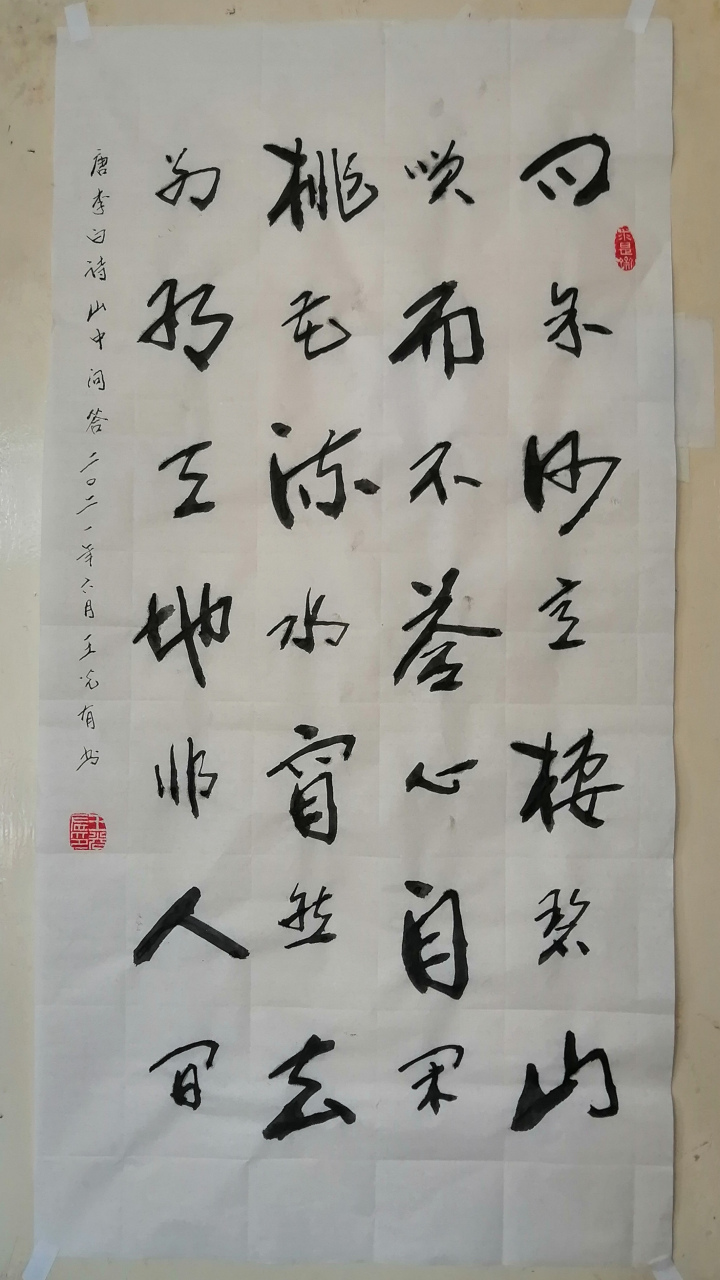 问余何意棲碧山
咲而不答心自闲
桃花流水窅然去
别有天地非人间
唐李白诗山中问答二〇二一年六月王光有书